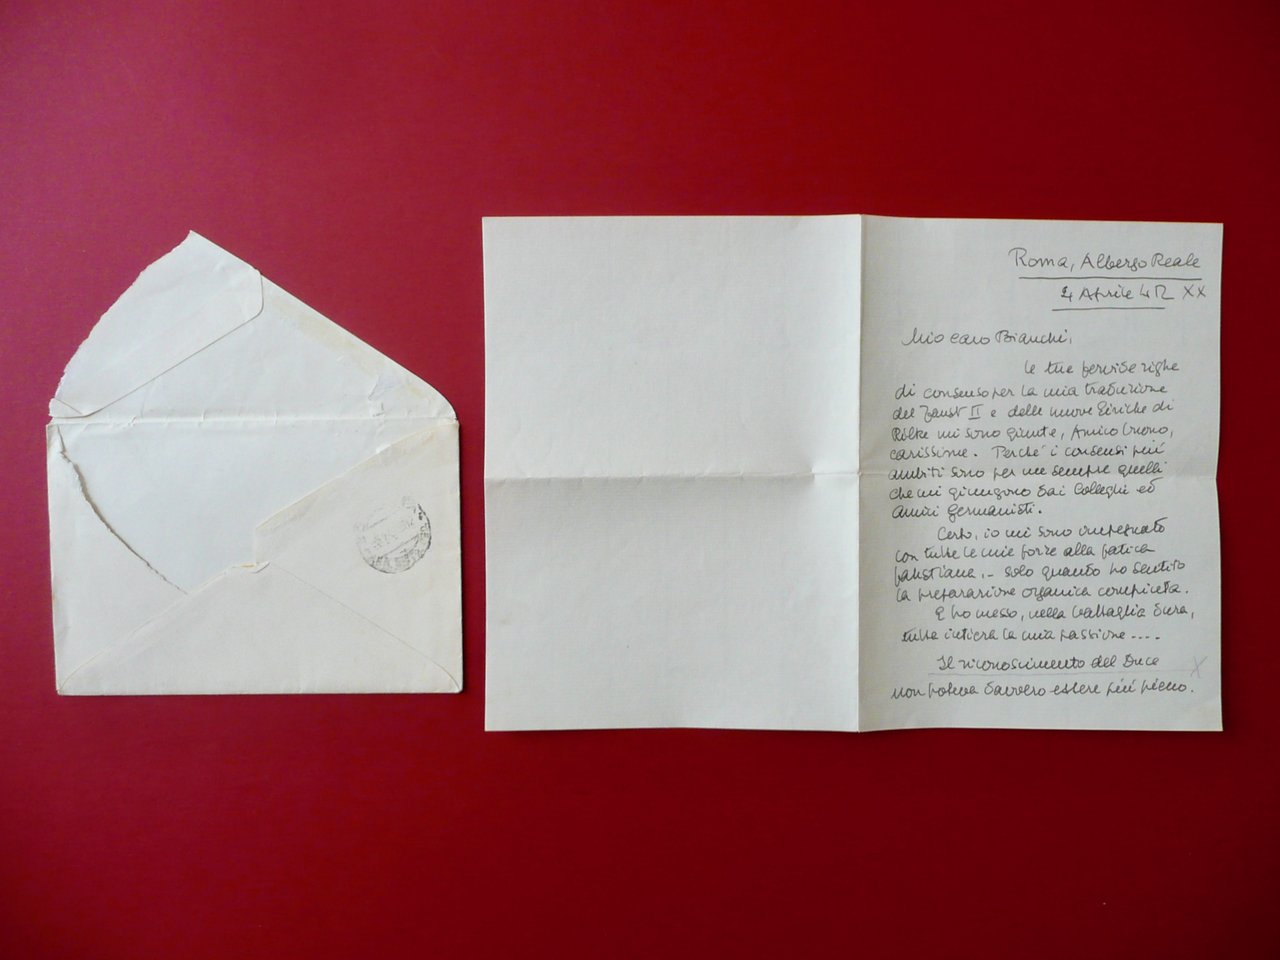 Roma, Albergo Reale
4 Aprile 42 XX
Mio caro Bianchi,
le tue fervide righe
di consenso per la mia traduzione
del Faust II e delle nuove liriche di
Rilke mi sono giunte, Amico buono,
carissime. Perché i consensi più
ambiti sono per me sempre quelli
che mi giungono dai Colleghi ed
Amici germanisti.
Certo, io mi sono impegnato
con tutte le mie forze alla fatica
faustiana, - solo quando ho sentito
la preparazione organica compiuta.
E ho messo, nella battaglia dura,
tutta intiera la mia passione ....
Il riconoscimento del Duce X
non poteva davvero essere più pieno.